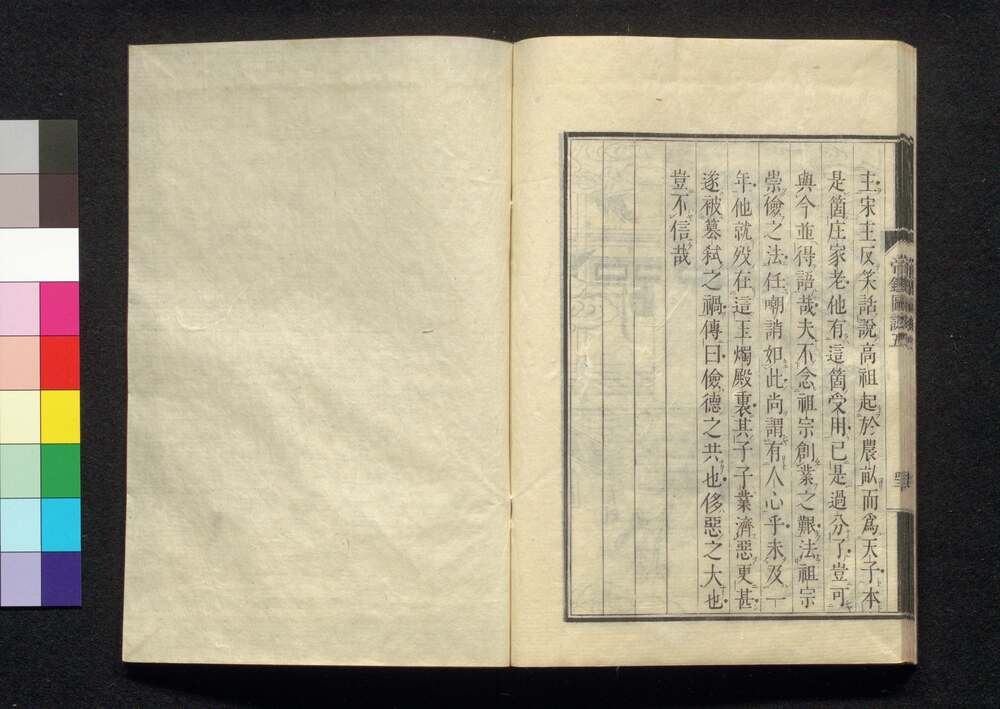 主宋主反笑話說高祖起於農畝而爲天子本
是箇庄家老他有這箇受用已是過分了豈可
與今並得語哉夫不念祖宗創業之艱法祖宗
崇儉之法任嘲誚如此尚謂有人心乎未及一
年他就歿在這玉燭殿裏其子子業濟惡更甚
遂被篡弑之禍傳曰儉德之共也侈惡之大也
豈不信哉
帝鑑圖說五